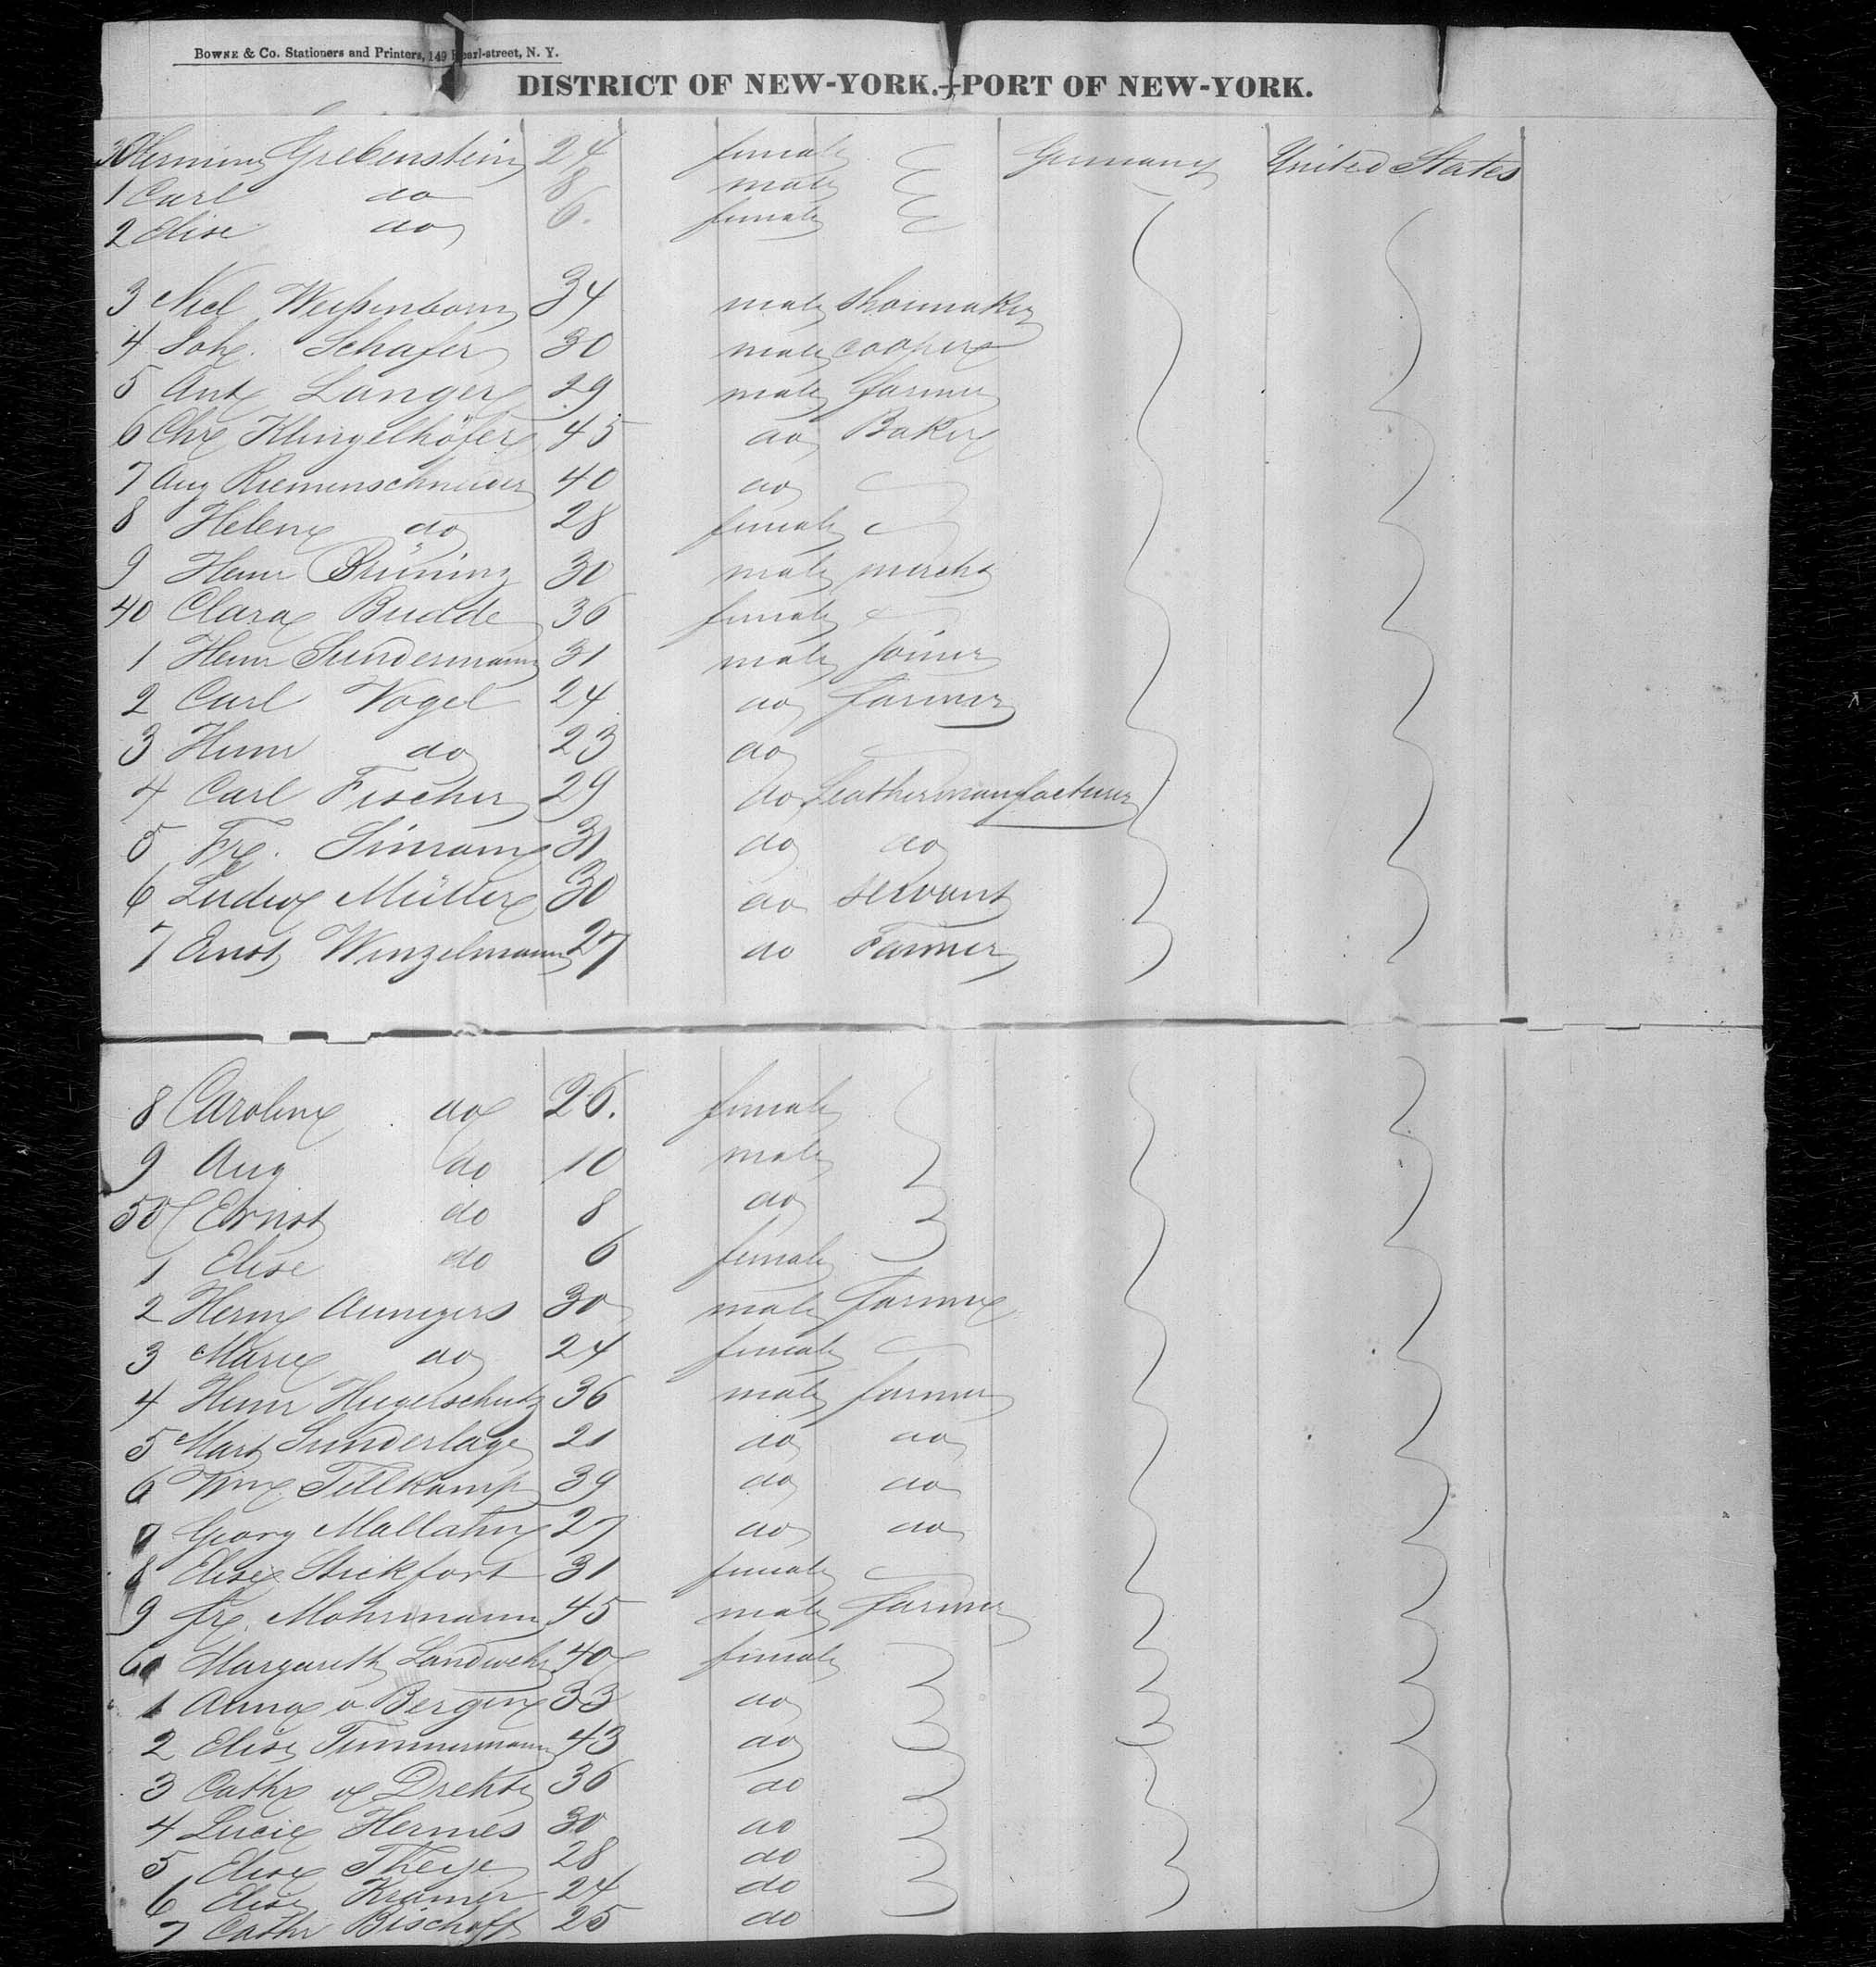 BOWNE & CO. Stationers and Printers, 149 Pearl-street, N. Y.
DISTRICT OF NEW-YORK.—PORT OF NEW-YORK.
30 Hermine Grebenstein 24 female Germany United States
1 Carl do 8 male
2 Elise do 6. female
3 Nicl Weißenborn 34 male Shoemaker
4 Joh. Schafer 30 male cooper
5 Ant Langer 29 male farmer
6 Chr Klingelhöfer 45 do Baker
7 Aug Riemenschneider 40 do
8 Helene do 28 female
9 Henr Brüning 30 male mercht
40 Clara Budde 36 female
1 Henr Sundermann 31 male joiner
2 Carl Vogel 24 do farmer
3 Henr do 23 do
4 Carl Fischer 29 do Leathermanufacturer
5 Fr. Simram 31 do do
6 Ludw Müller 30 do servant
7 Ernst Winzelmann 27 do Farmer
8 Caroline do 26. female
9 Aug do 10 male
50 Ernst do 8 do
1 Elise do 6 female
2 Herm 30 male farmer
3 Marie do 24 female
4 Henr Hugelschutz 36 male farmer
5 Mart Sunderlage 21 do do
6 Wm Tellkamp 39 do do
7 Georg Mallahn 27 do do
8 Elise Strickfort 31 female
9 fr. Mohrmann 45 male farmer
60 Margareth Landwehr 40 female
1 Anna v Bergen 33 do
2 Elise Timmermann 43 do
3 Cathr v Drehte 36 do
4 Lucie Hermes 30 do
5 Elise Theye 28 do
6 Elise Kramer 24 do
7 Cathr Bischoff 25 do